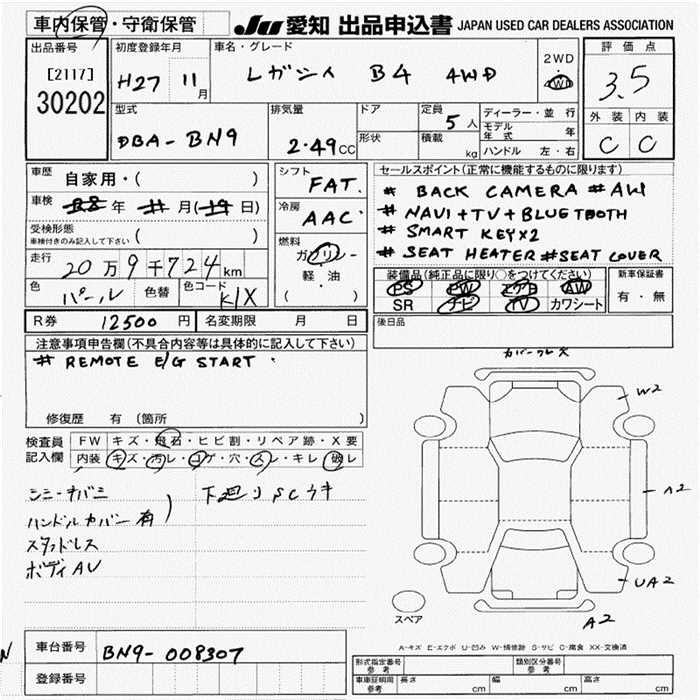 車内保管・守衛保管
JU 愛知 出品申込書 JAPAN USED CAR DEALERS ASSOCIATION
出品番号
[2117]
30202
初度登録年月
H27 11月
車名・グレード
レガシィ B4 4WD
2WD
4WD
評価点
3.5
外装 内装
C C
型式
DBA-BN9
排気量
2.49CC
ドア
形状
定員
5人
積載
kg
ディーラー・並行
モデル年式 年
ハンドル 左・右
車歴
自家用・( )
車検
年 月( 日)
受検形態
車検付きのみ記入して下さい ( )
走行
20万9千724km
色
パール
色替
色コード
K1X
シフト
FAT
冷房
AAC
燃料
ガソリン
軽・油
( )
セールスポイント(正常に機能するものに限ります)
# BACK CAMERA # AW
# NAVI + TV + BLUETOOTH
# SMART KEY×2
# SEAT HEATER # SEAT COVER
装備品(純正品に限り○をつけてください)
PS PW エアB AW
SR ナビ TV カワシート
新車保証書
有・無
後日品
R券 12500円
名変期限 月 日
注意事項申告欄(不具合内容等は具体的に記入して下さい)
# REMOTE E/G START
修復歴 有 〔箇所 〕
検査員記入欄
FW キズ・飛石・ヒビ割・リペア跡・X要
内装 キズ・汚レ・コゲ・穴・スレ・キレ・破レ
ハンドルカバー有
スタッドレス
ボディAU
下廻りSCウキ
W2
A2
UA2
A2
スペア
A-キズ E-エクボ U-凹み W-補修跡 S-サビ C-腐食 XX-交換済
車台番号
BN9-008307
登録番号
形式指定番号
参考
類別区分番号
参考
車庫証明用
参考
長さ cm
幅 cm
高さ cm